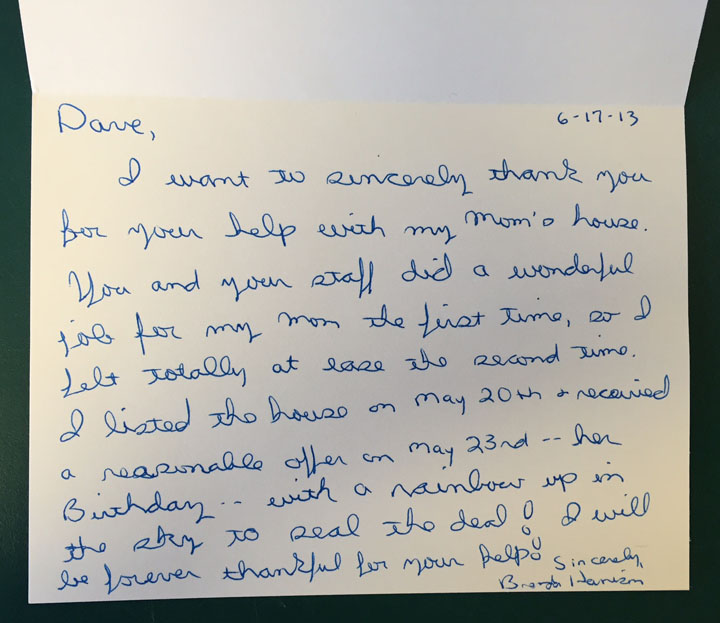 Dave, 6-17-13
I want to sincerely thank you
for your help with my Mom's house.
You and your staff did a wonderful
job for my mom the first time, so I
felt totally at ease the second time.
I listed the house on May 20th & received
a reasonable offer on May 23rd -- her
Birthday -- with a rainbow up in
the sky to seal the deal! I will
be forever thankful for your help!
Sincerely,